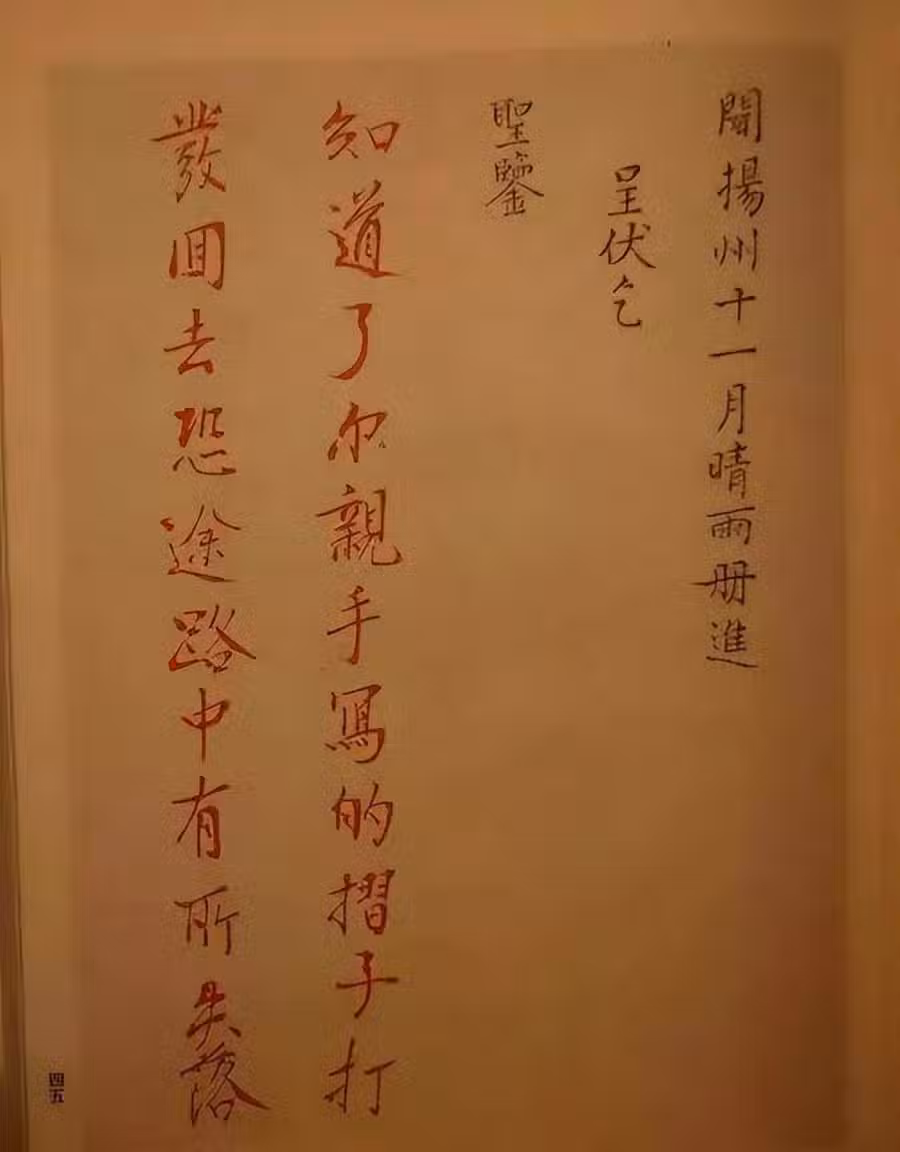 聞揚州十一月晴雨册進
呈伏乞
聖鑒
知道了尔親手寫的摺子打
發回去恐途路中有所失落
四五